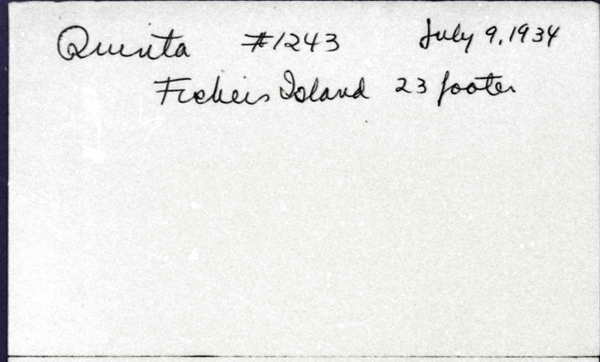 Quinta #1243 July 9, 1934
Fishers Island 23 footer